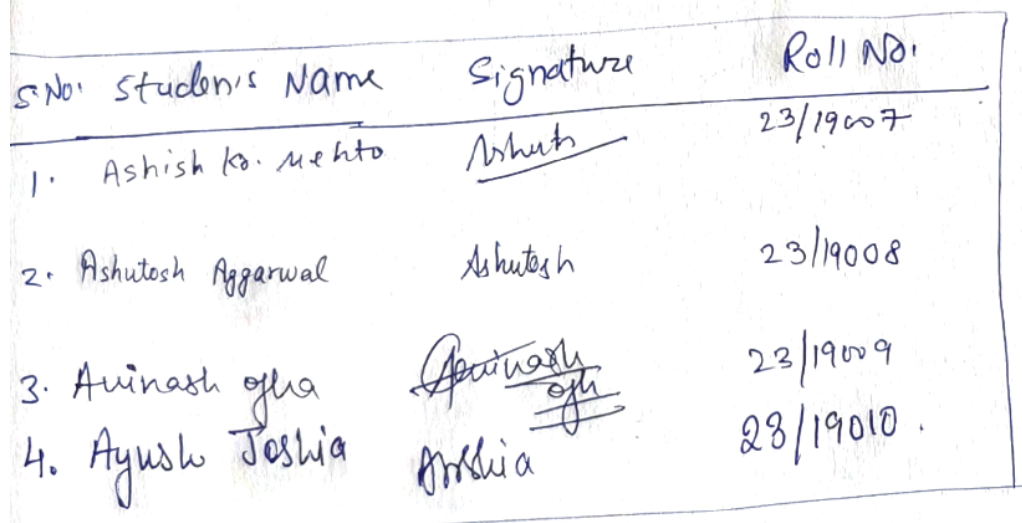 S.No. Studen's Name Signature Roll No.
1. Ashish Ko. Mehto Ashuts 23/19007
2. Ashutosh Aggarwal Ashutosh 23/19008
3. Avinash ojha Avinash ojh 23/19009
4. Ayush Joshia 23/19010.